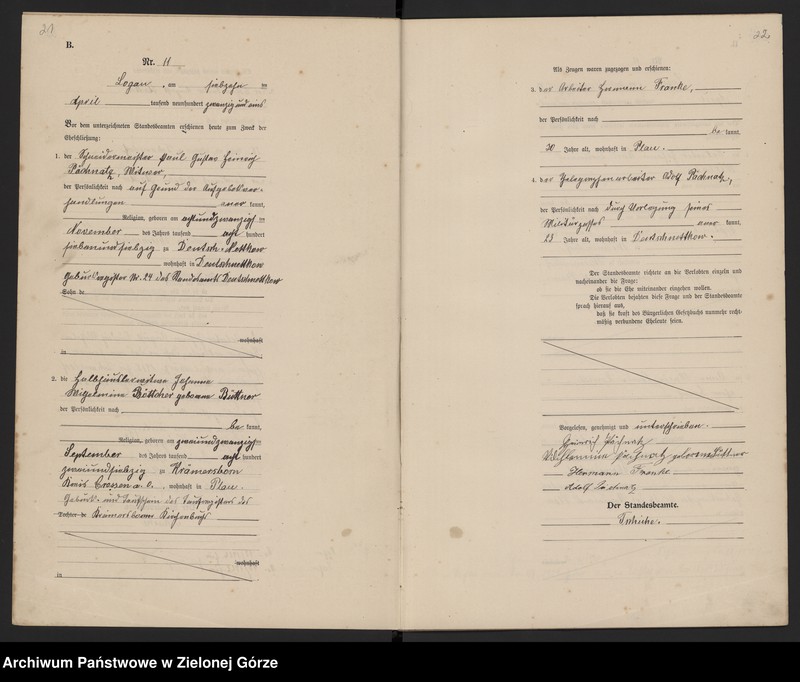 21
B.
Nr. 11
Logau, am siebzehn ten
April tausend neunhundert zwanzig und eins
Vor dem unterzeichneten Standesbeamten erschienen heute zum Zweck der
Eheschließung:
1. der Schneidermeister Paul Gustav Heinrich
Päschnatz, Witwer,
der Persönlichkeit nach auf Grund der Aufgebotsver-
handlungen aner kannt,
Religion, geboren am achtundzwanzigs ten
November des Jahres tausend acht hundert
siebenundsiebzig zu Deutsch-Nettkow
wohnhaft in Deutschnettkow
Geburtsregister Nr. 24 des Standesamts Deutschnettkow
Sohn de
wohnhaft
in
2. die Halbhäuslerwitwe Johanne
Wilhelmine Böttcher geborene Büttner
der Persönlichkeit nach
be kannt,
Religion, geboren am zweiundzwanzigs ten
September des Jahres tausend acht hundert
zweiundsiebzig zu Krämersborn
Kreis Crossen a. O. wohnhaft in Plau.
Geburts- und Taufschein des Taufregisters des
Tochter de Krämersborn Kirchenbuchs
wohnhaft
in
22.
Als Zeugen waren zugezogen und erschienen:
3. der Arbeiter Hermann Franke,
der Persönlichkeit nach
be kannt,
Jahre alt, wohnhaft in Plau.
4. der Telegraphenarbeiter Adolf Päschnatz,
der Persönlichkeit nach durch Vorlegung seines
Militärpasses aner kannt,
23 Jahre alt, wohnhaft in Deutschnettkow.
Der Standesbeamte richtete an die Verlobten einzeln und
nacheinander die Frage:
ob sie die Ehe miteinander eingehen wollen.
Die Verlobten bejahten diese Frage und der Standesbeamte
sprach hierauf aus,
daß sie kraft des Bürgerlichen Gesetzbuchs nunmehr recht-
mäßig verbundene Eheleute seien.
Vorgelesen, genehmigt und unterschrieben.
Heinrich Päschnatz
Wilhelmine Päschnatz geborene Büttner
Hermann Franke
Adolf Päschnatz
Der Standesbeamte.
Archiwum Państwowe w Zielonej Górze